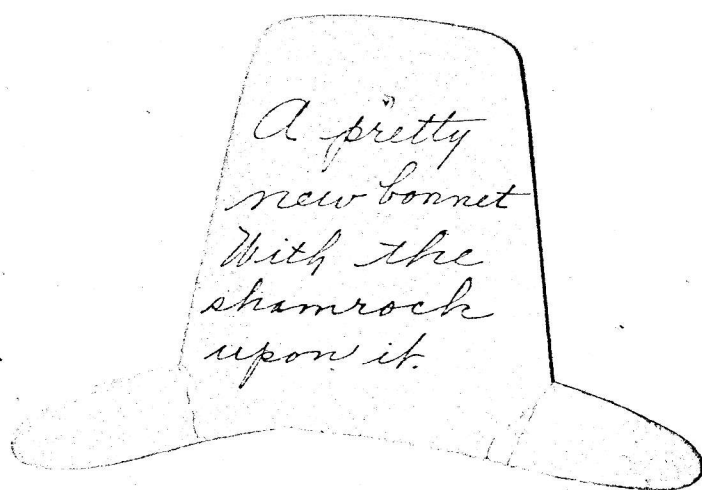 A pretty
new bonnet
With the
shamrock
upon it.